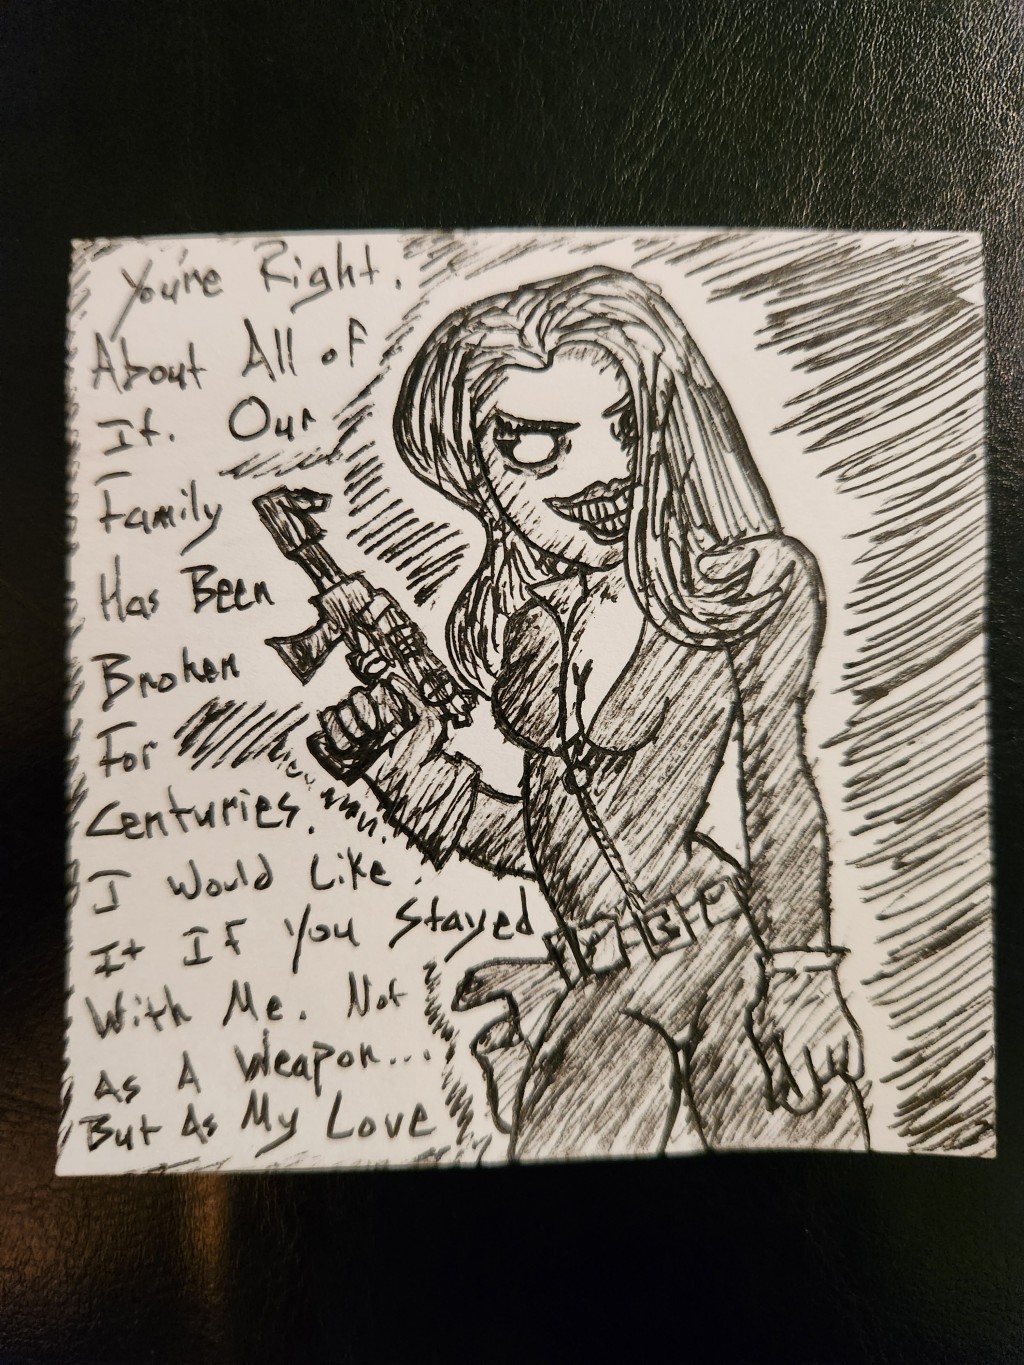 You're Right.
About All of
It. Our
Family
Has Been
Broken
For
Centuries.
I Would Like
It If You Stayed
With Me. Not
As A Weapon...
But As My Love